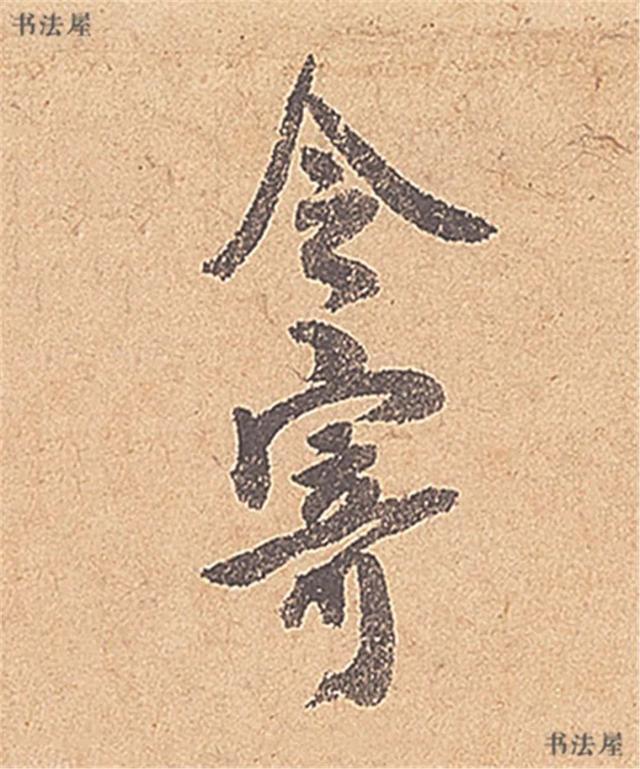 书法屋
今寄
书法屋